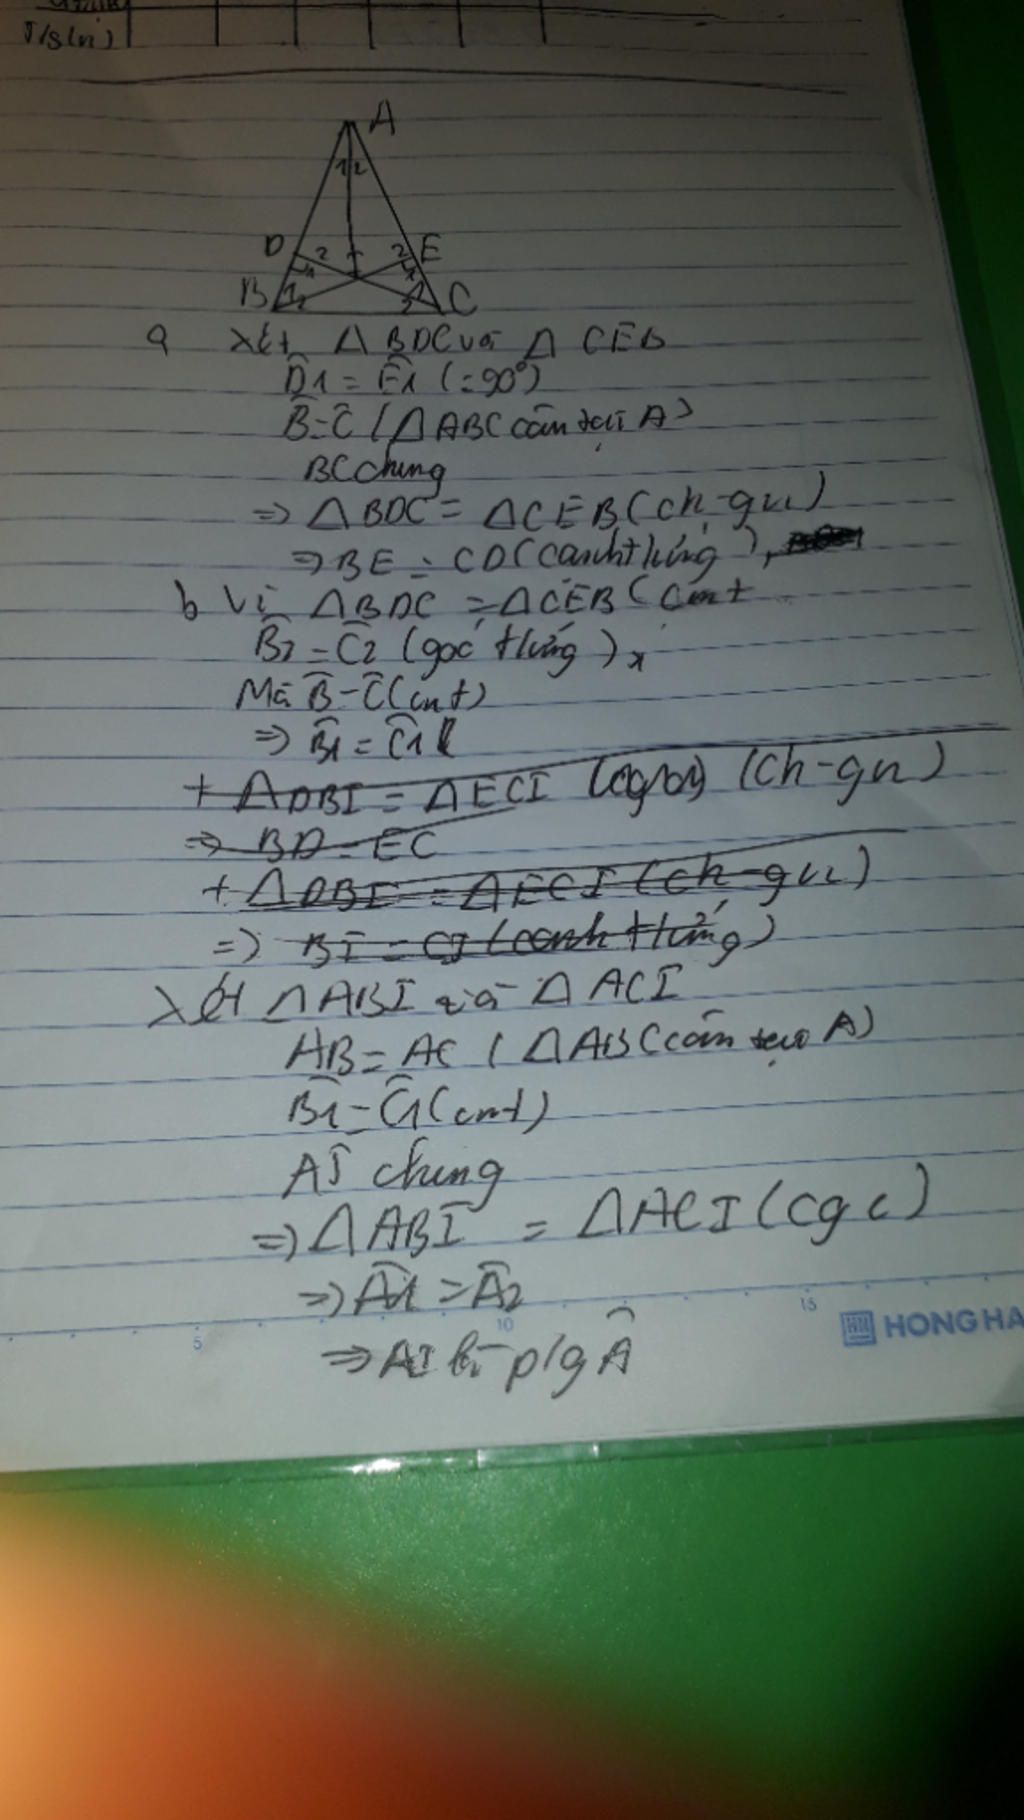 T/s(n)
A
1 2
D 2 2 E
1 1
B 1 2 2 1 C
a Xét Δ BDC và Δ CEB
D̂1 = Ê1 (=90°)
B̂=Ĉ (Δ ABC cân tại A)
BC chung
=> Δ BDC = Δ CEB (ch-gn)
=> BE = CD (cạnh t/ứng),
b Vì ΔBDC = ΔCEB (cmt
B̂2 = Ĉ2 (góc t/ứng)
Mà B̂=Ĉ (cmt)
=> B̂1 = Ĉ1
+ ΔDBI = ΔECI (ch-gn)
=> BD = EC
+ ΔDBI = ΔECI (ch-gn)
=> BI = CI (cạnh t/ứng)
Xét ΔABI và Δ ACI
AB = AC (ΔABC cân tại A)
B̂1 = Ĉ1 (cmt)
AI chung
=> ΔABI = ΔACI (cgc)
=> Â1 = Â2
=> AI là p/g Â
5 10 15
HONG HA